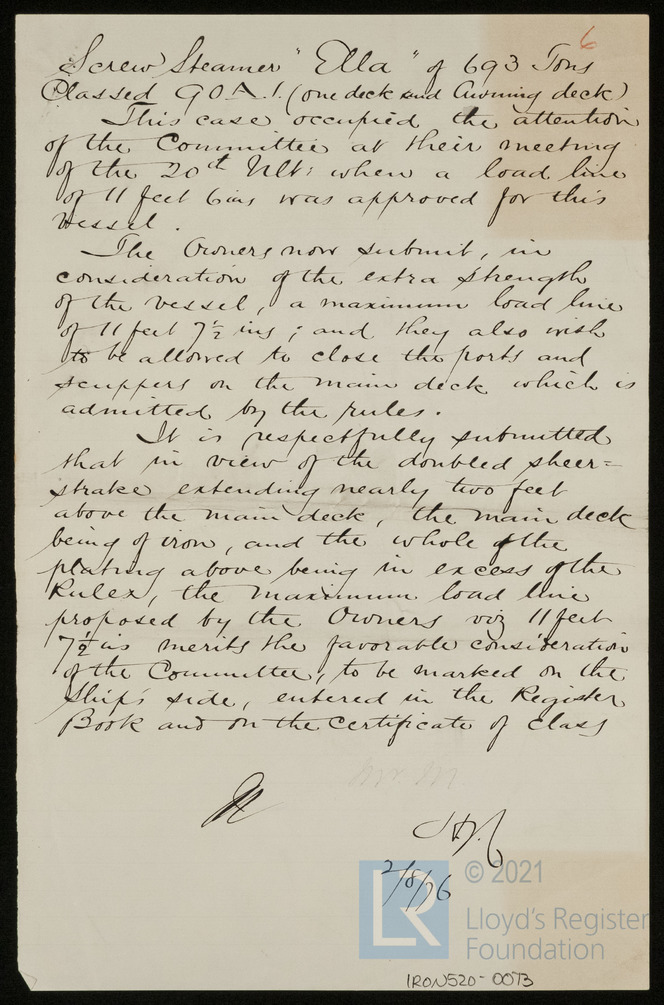 6
Screw Steamer "Ella" of 693 Tons
Classed 90 A.1. (one deck and Awning deck)
This case occupied the attention
of the Committee at their meeting
of the 20th Ult: when a load line
of 11 feet 6 ins was approved for this
vessel.
The Owners now submit, in
consideration of the extra strength
of the vessel, a maximum load line
of 11 feet 7½ ins; and they also wish
to be allowed to close the ports and
scuppers on the main deck which is
admitted by the rules.
It is respectfully submitted
that in view of the doubled sheer=
strake extending nearly two feet
above the main deck, the main deck
being of iron, and the whole of the
plating above being in excess of the
Rules, the maximum load line
proposed by the Owners viz 11 feet
7½ ins merits the favorable consideration
of the Committee, to be marked on the
ship's side, entered in the Register
Book and on the certificate of class
2/8/76
© 2021
LR
Lloyd's Register
Foundation
IRON520-0073